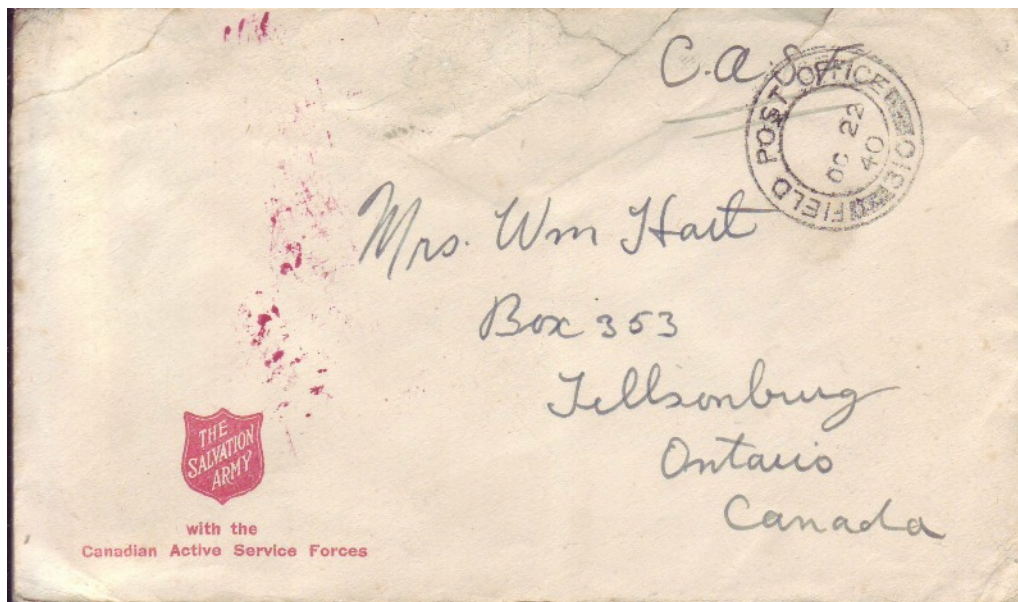 C.A.S.F.
FIELD POST OFFICE 310
OC 22
40
Mrs. Wm Hart
Box 353
Tillsonburg
Ontario
Canada
THE
SALVATION
ARMY
with the
Canadian Active Service Forces